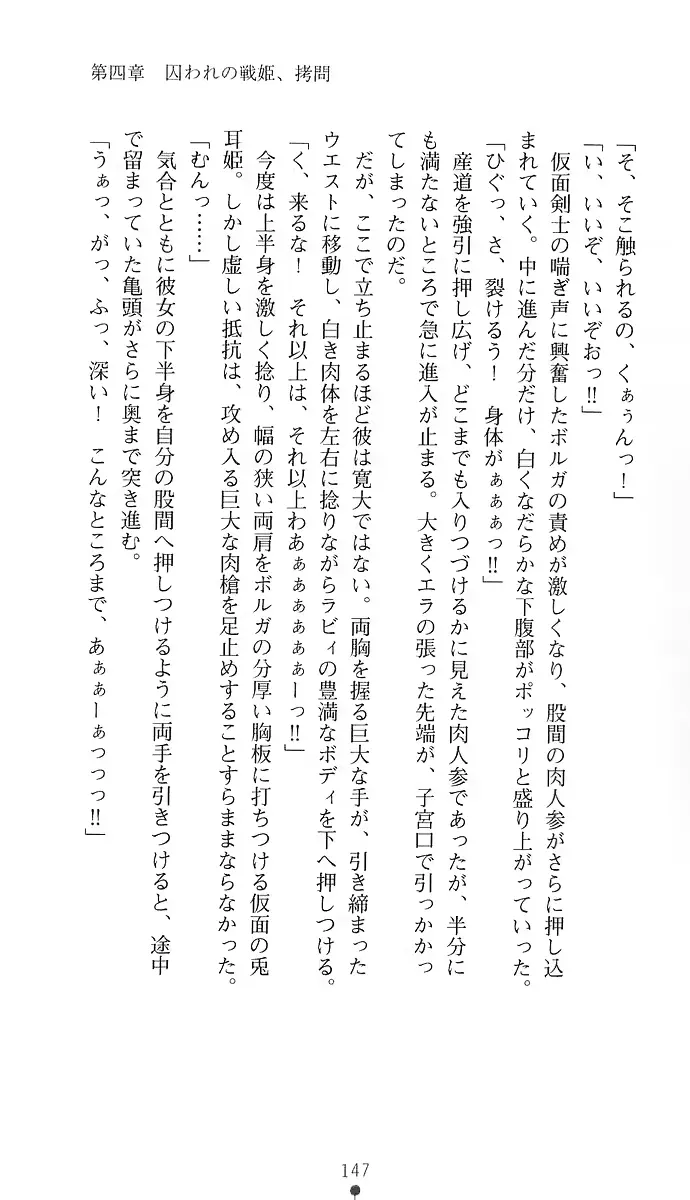 第四章　囚われの戦姫、拷問
「そ、そこ触られるの、くぁぅんっ！」
「い、いいぞ、いいぞおっ‼」
　仮面剣士の喘ぎ声に興奮したボルガの責めが激しくなり、股間の肉人参がさらに押し込
まれていく。中に進んだ分だけ、白くなだらかな下腹部がポッコリと盛り上がっていった。
「ひぐっ、さ、裂けるう！　身体がぁぁぁっ‼」
　産道を強引に押し広げ、どこまでも入りつづけるかに見えた肉人参であったが、半分に
も満たないところで急に進入が止まる。大きくエラの張った先端が、子宮口で引っかかっ
てしまったのだ。
　だが、ここで立ち止まるほど彼は寛大ではない。両胸を握る巨大な手が、引き締まった
ウエストに移動し、白き肉体を左右に捻りながらラビィの豊満なボディを下へ押しつける。
「く、来るな！　それ以上は、それ以上わあぁぁぁぁぁーっ‼」
　今度は上半身を激しく捻り、幅の狭い両肩をボルガの分厚い胸板に打ちつける仮面の兎
耳姫。しかし虚しい抵抗は、攻め入る巨大な肉槍を足止めすることすらままならなかった。
「むんっ……」
　気合とともに彼女の下半身を自分の股間へ押しつけるように両手を引きつけると、途中
で留まっていた亀頭がさらに奥まで突き進む。
「うぁっ、がっ、ふっ、深い！　こんなところまで、あぁぁーぁっっっ‼」
147